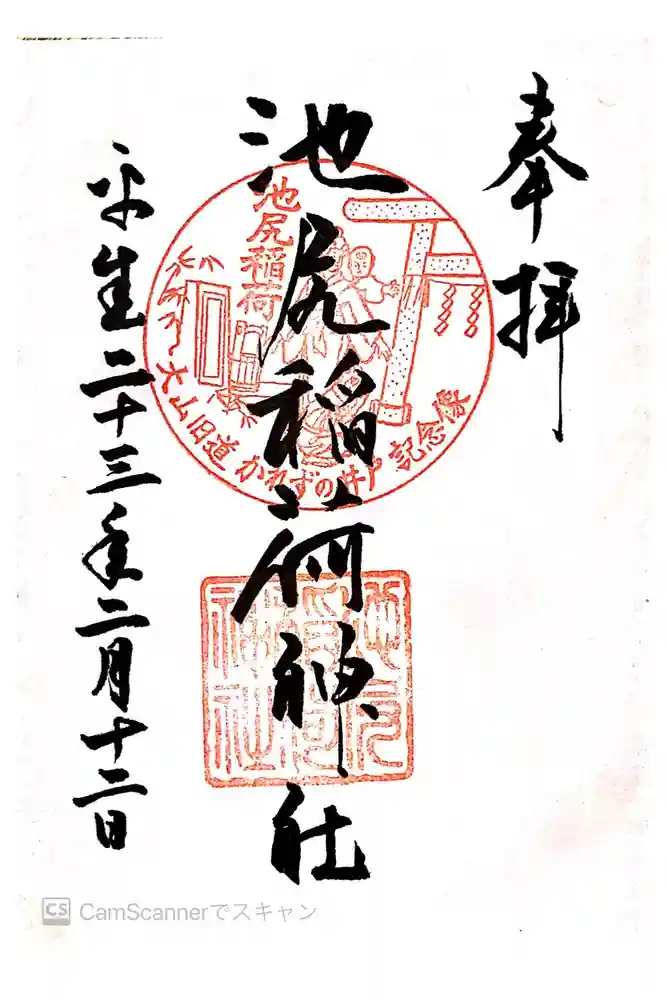 奉拝
池尻稲荷神社
平生二十三年二月十二日
池尻稲荷
大山旧道 かれずの井戸 記念像
池尻
稲荷
神社
CS CamScannerでスキャン